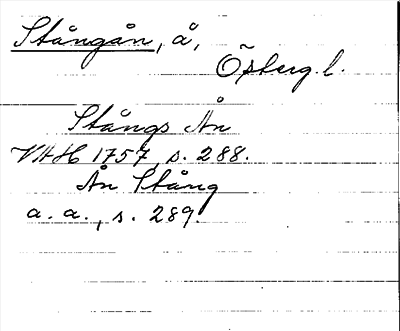 Stångån, å,
Östergl.
Stångs Ån
VAH 1757, s. 288.
Ån Stång
a. a., s. 289.